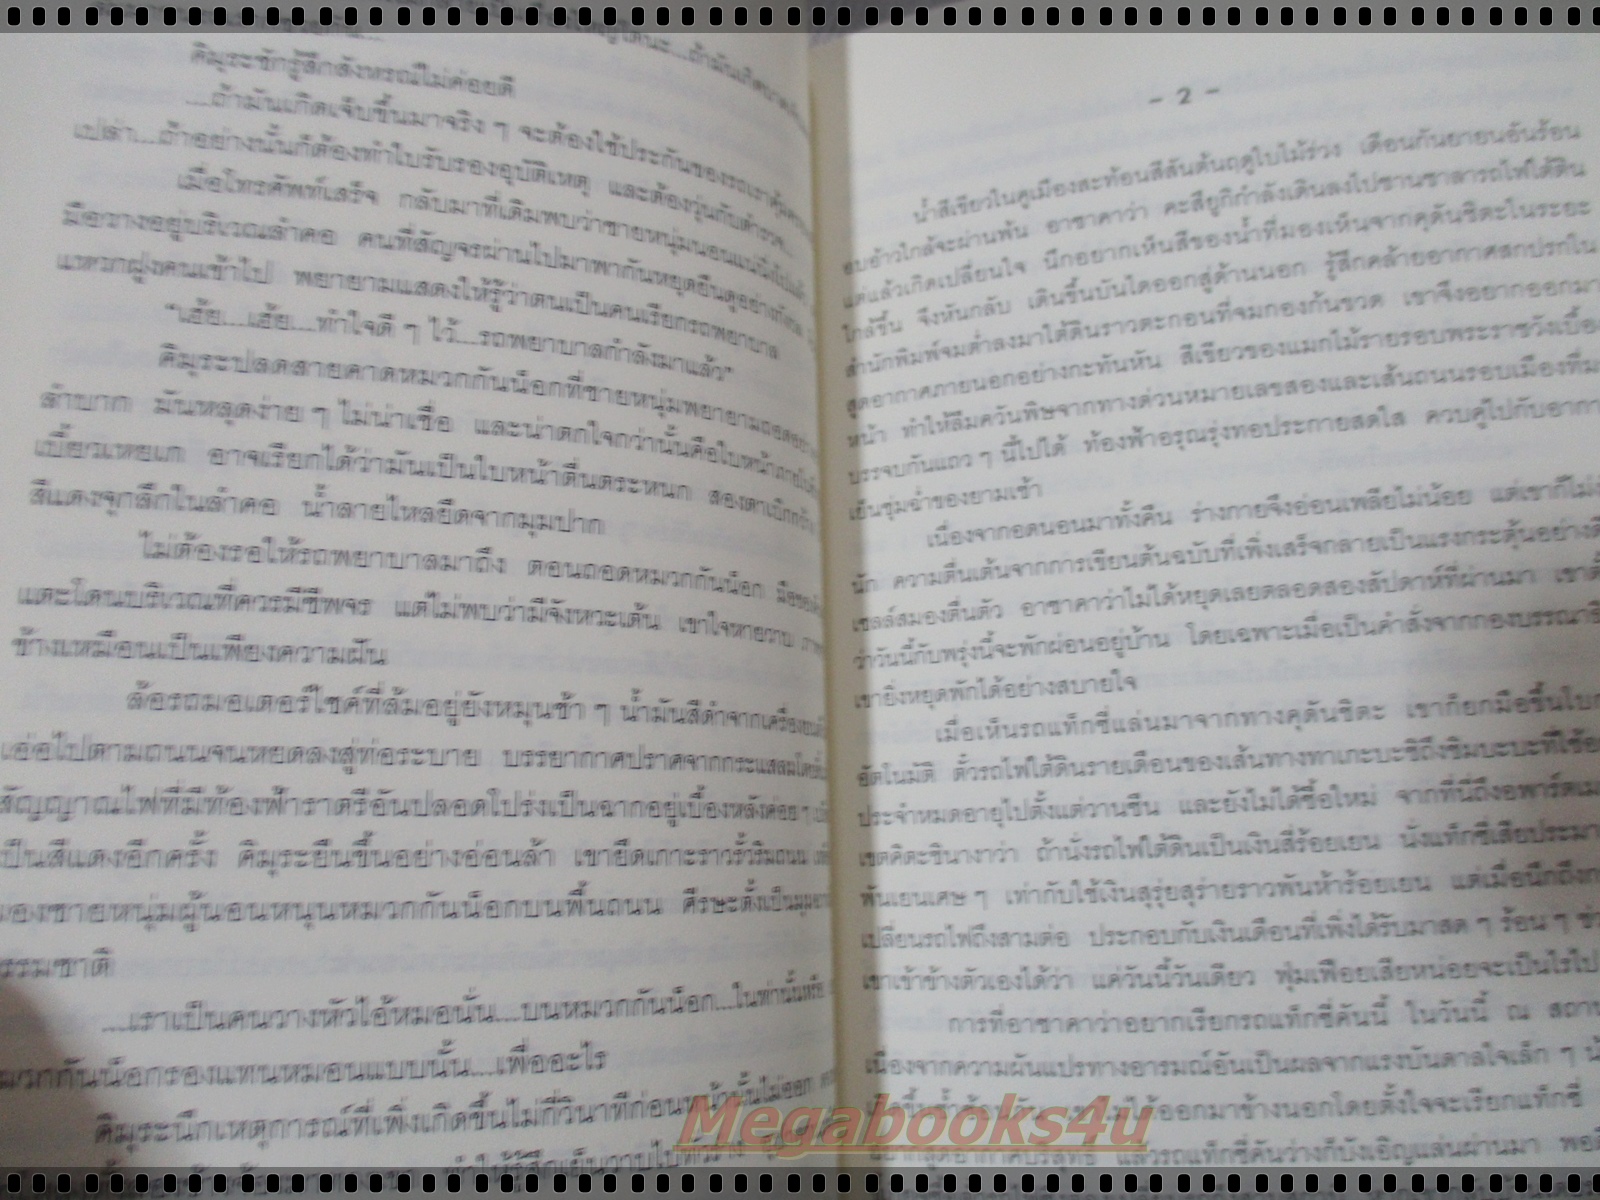 คิมุระชักรู้สึกสังหรณ์ไม่ค่อยดี
....ถ้ามันเกิดเจ็บขึ้นมาจริง ๆ จะต้องใช้ประกันของรถเราคุ้มครอง
เปล่า....ถ้าอย่างนั้นก็ต้องทำใบรับรองอุบัติเหตุ และต้องวุ่นกับตำรวจ....
เมื่อโทรศัพท์เสร็จ กลับมาที่เดิมพบว่าชายหนุ่มนอนแน่นิ่งไปแล้ว
มือวางอยู่บริเวณลำคอ คนที่สัญจรผ่านไปมาพากันหยุดยืนดูอย่างกังวล
แหวกฝูงคนเข้าไป พยายามแสดงให้รู้ว่าตนเป็นคนเรียกรถพยาบาล
"เฮ้ย....เฮ้ย....ทำใจดี ๆ ไว้....รถพยาบาลกำลังมาแล้ว"
คิมุระปลดสายคาดหมวกกันน็อกที่ชายหนุ่มพยายามถอดอย่าง
ลำบาก มันหลุดง่าย ๆ ไม่น่าเชื่อ และน่าตกใจกว่านั้นคือใบหน้าภายใน
เบี้ยวเหยเก อาจเรียกได้ว่ามันเป็นใบหน้าตื่นตระหนก สองตาเบิกกว้าง
สีแดงจุกลึกในลำคอ น้ำลายไหลยืดจากมุมปาก
ไม่ต้องรอให้รถพยาบาลมาถึง ตอนถอดหมวกกันน็อก มือของ
แตะโดนบริเวณที่ควรมีชีพจร แต่ไม่พบว่ามีจังหวะเต้น เขาใจหายวาบ
ข้างเหมือนเป็นเพียงความฝัน
ล้อรถมอเตอร์ไซค์ที่ล้มอยู่ยังหมุนช้า ๆ น้ำมันสีดำจากเครื่องยนต์
เอ่อไปตามถนนจนหยดลงสู่ท่อระบาย บรรยากาศปราศจากกระแสลมโดยสิ้น
สัญญาณไฟที่มีท้องฟ้าราตรีอันปลอดโปร่งเป็นฉากอยู่เบื้องหลังค่อย ๆ
เป็นสีแดงอีกครั้ง คิมุระยืนขึ้นอย่างอ่อนล้า เขายึดเกาะราวรั้วริมถนน
มองชายหนุ่มผู้นอนหนุนหมวกกันน็อกบนพื้นถนน ศีรษะตั้งเป็นมุม
ธรรมชาติ
....เราเป็นคนวางหัวไอ้หมอนั่น....บนหมวกกันน็อก....ในท่านั้นหรือ
หมวกกันน็อกรองแทนหมอนแบบนั้น....เพื่ออะไร
คิมุระนึกเหตุการณ์ที่เพิ่งเกิดขึ้นไม่กี่วินาทีก่อนหน้านั้นไม่ออก
ทำให้รู้สึกเย็นวาบไปทั่วร่าง
- 2 -
น้ำสีเขียวในคูเมืองสะท้อนสีสันต้นฤดูใบไม้ร่วง เดือนกันยายนอันร้อน
อบอ้าวใกล้จะผ่านพ้น อาซาคาว่า คะสึยูกิกำลังเดินลงไปชานชาลารถไฟใต้ดิน
แต่แล้วเกิดเปลี่ยนใจ นึกอยากเห็นสีของน้ำที่มองเห็นจากคุดันชิตะในระยะ
ใกล้ขึ้น จึงหันกลับ เดินขึ้นบันไดออกสู่ด้านนอก รู้สึกคล้ายอากาศสกปรกใน
สำนักพิมพ์จมต่ำลงมาใต้ดินราวตะกอนที่จมกองก้นขวด เขาจึงอยากออกมา
สูดอากาศภายนอกอย่างกะทันหัน สีเขียวของแมกไม้รายรอบพระราชวังเบื้อง
หน้า ทำให้ลืมควันพิษจากทางด่วนหมายเลขสองและเส้นถนนรอบเมืองที่มา
บรรจบกันแถว ๆ นี้ไปได้ ท้องฟ้าอรุณรุ่งทอประกายสดใส ควบคู่ไปกับอากาศ
เย็นชุ่มฉ่ำของยามเช้า
เนื่องจากอดนอนมาทั้งคืน ร่างกายจึงอ่อนเพลียไม่น้อย แต่เขาก็ไม่ง่วง
นัก ความตื่นเต้นจากการเขียนต้นฉบับที่เพิ่งเสร็จกลายเป็นแรงกระตุ้นอย่างดี
เซลล์สมองตื่นตัว อาซาคาว่าไม่ได้หยุดเลยตลอดสองสัปดาห์ที่ผ่านมา เขาตั้ง
ว่าวันนี้กับพรุ่งนี้จะพักผ่อนอยู่บ้าน โดยเฉพาะเมื่อเป็นคำสั่งจากกองบรรณาธิ
เขายิ่งหยุดพักได้อย่างสบายใจ
เมื่อเห็นรถแท็กซี่แล่นมาจากทางคุดันชิตะ เขาก็ยกมือขึ้นโบก
อัตโนมัติ ตั๋วรถไฟใต้ดินรายเดือนของเส้นทางทาเกะบะชิถึงชิมบะบะที่ใช้อยู่
ประจำหมดอายุไปตั้งแต่วานซืน และยังไม่ได้ซื้อใหม่ จากที่นี่ถึงอพาร์ตเมนต์
เขตคิตะชินางาว่า ถ้านั่งรถไฟใต้ดินเป็นเงินสี่ร้อยเยน นั่งแท็กซี่เสียประมาณ
พันเยนเศษ ๆ เท่ากับใช้เงินสุรุ่ยสุร่ายราวพันห้าร้อยเยน แต่เมื่อนึกถึง
เปลี่ยนรถไฟถึงสามต่อ ประกอบกับเงินเดือนที่เพิ่งได้รับมาสด ๆ ร้อน ๆ
เขาเข้าข้างตัวเองได้ว่า แค่วันนี้วันเดียว ฟุ่มเฟือยเสียหน่อยจะเป็นไรไป
การที่อาซาคาว่าอยากเรียกรถแท็กซี่คันนี้ ในวันนี้ ณ สถาน
เนื่องจากความผันแปรทางอารมณ์อันเป็นผลจากแรงบันดาลใจเล็ก ๆ
ไม่ได้ออกมาข้างนอกโดยตั้งใจจะเรียกแท็กซี่
อยากสูดอากาศบริสุทธิ์ แล้วรถแท็กซี่คันว่างก็บังเอิญแล่นผ่านมา พอดี
Megabooks4u